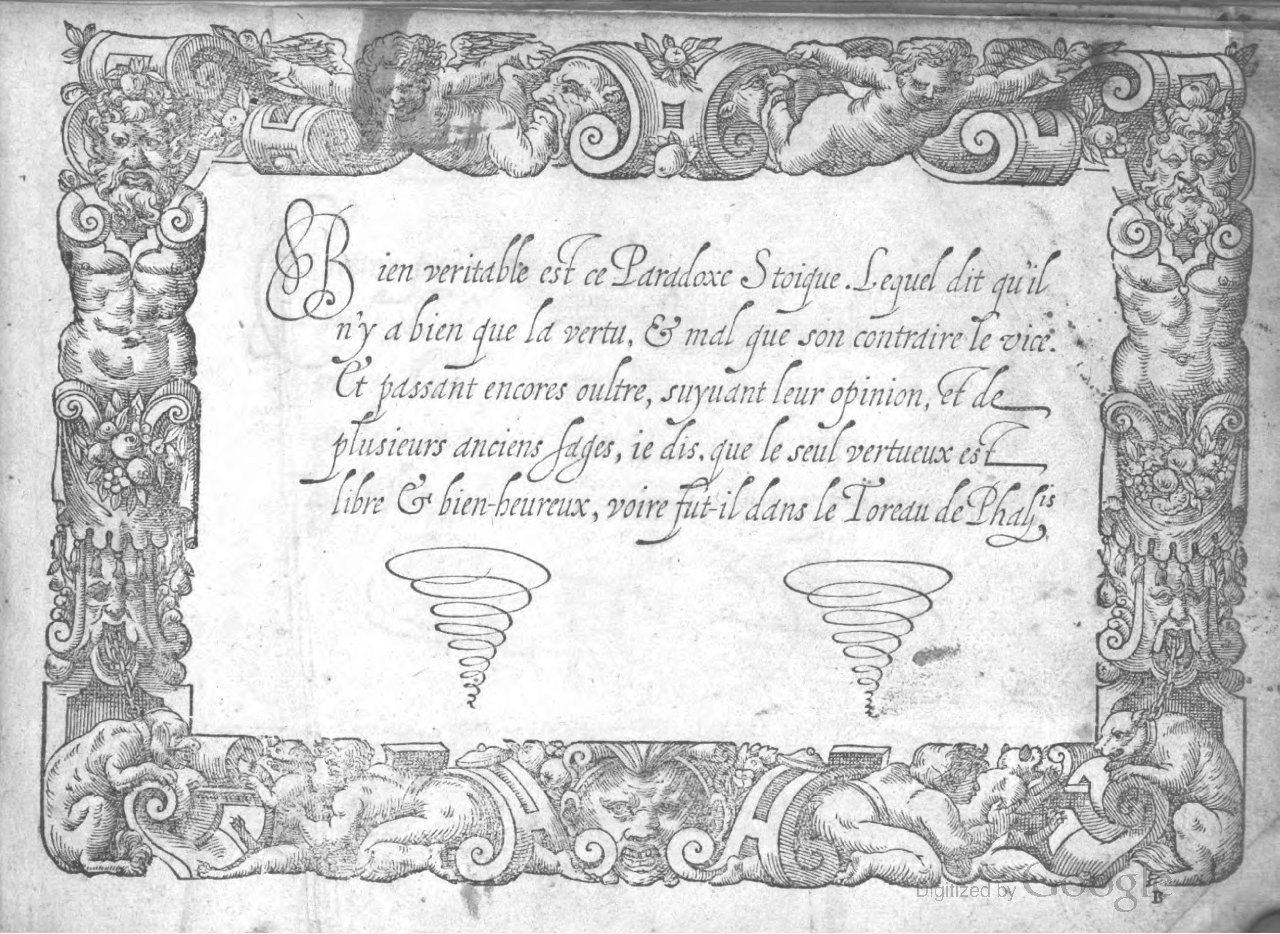 Bien veritable est ce Paradoxe Stoique. Lequel dit qu'il
n'y a bien que la vertu, & mal que son contraire le vice.
Et passant encores oultre, suyuant leur opinion, et de
plusieurs anciens sages, ie dis. que le seul vertueux est
libre & bien-heureux, voire fut-il dans le Toreau de Phalis
Digitized by Google
B